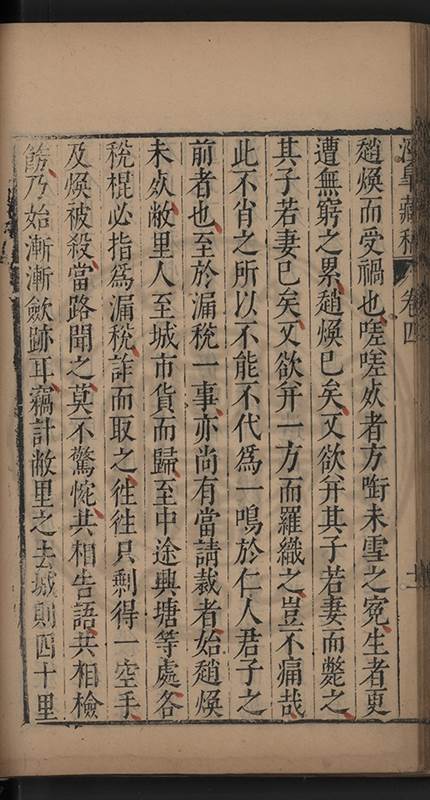 卷四
趙煥而受禍也嗟嗟死者方啣未雪之寃生者更
遭無窮之累趙煥已矣又欲并其子若妻而斃之
其子若妻已矣又欲并一方而羅織之豈不痛哉
此不肖之所以不能不代爲一鳴於仁人君子之
前者也至於漏稅一事亦尚有當請裁者始趙煥
未死敝里人至城市貨而歸至中途興塘等處各
稅棍必指爲漏稅詐而取之徃徃只剩得一空手
及煥被殺當路聞之莫不驚恠共相告語共相檢
飭乃始漸漸歛跡耳竊計敝里之去城則四十里